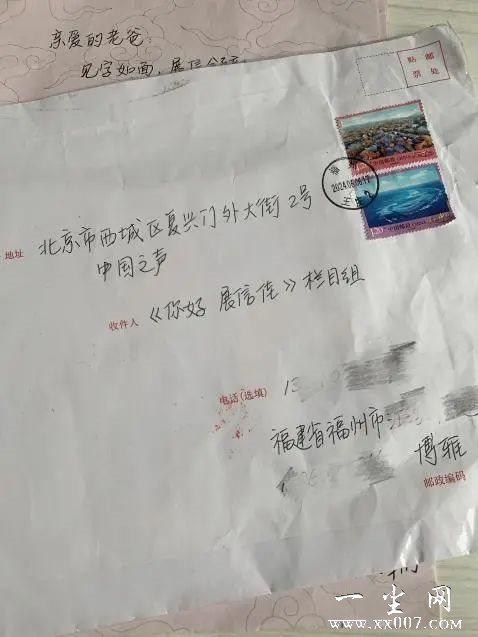 亲爱的老爸：
见字如面，展信
贴 邮
票 处
中国邮政
1.20 中国邮政
2024.06.06.17
地址 北京市西城区复兴门外大街2号
中国之声
收件人 《你好 展信佳》栏目组
电话(选填) 13
福建省福州市
博雅
邮政编码
一尘网
www.xx007.com